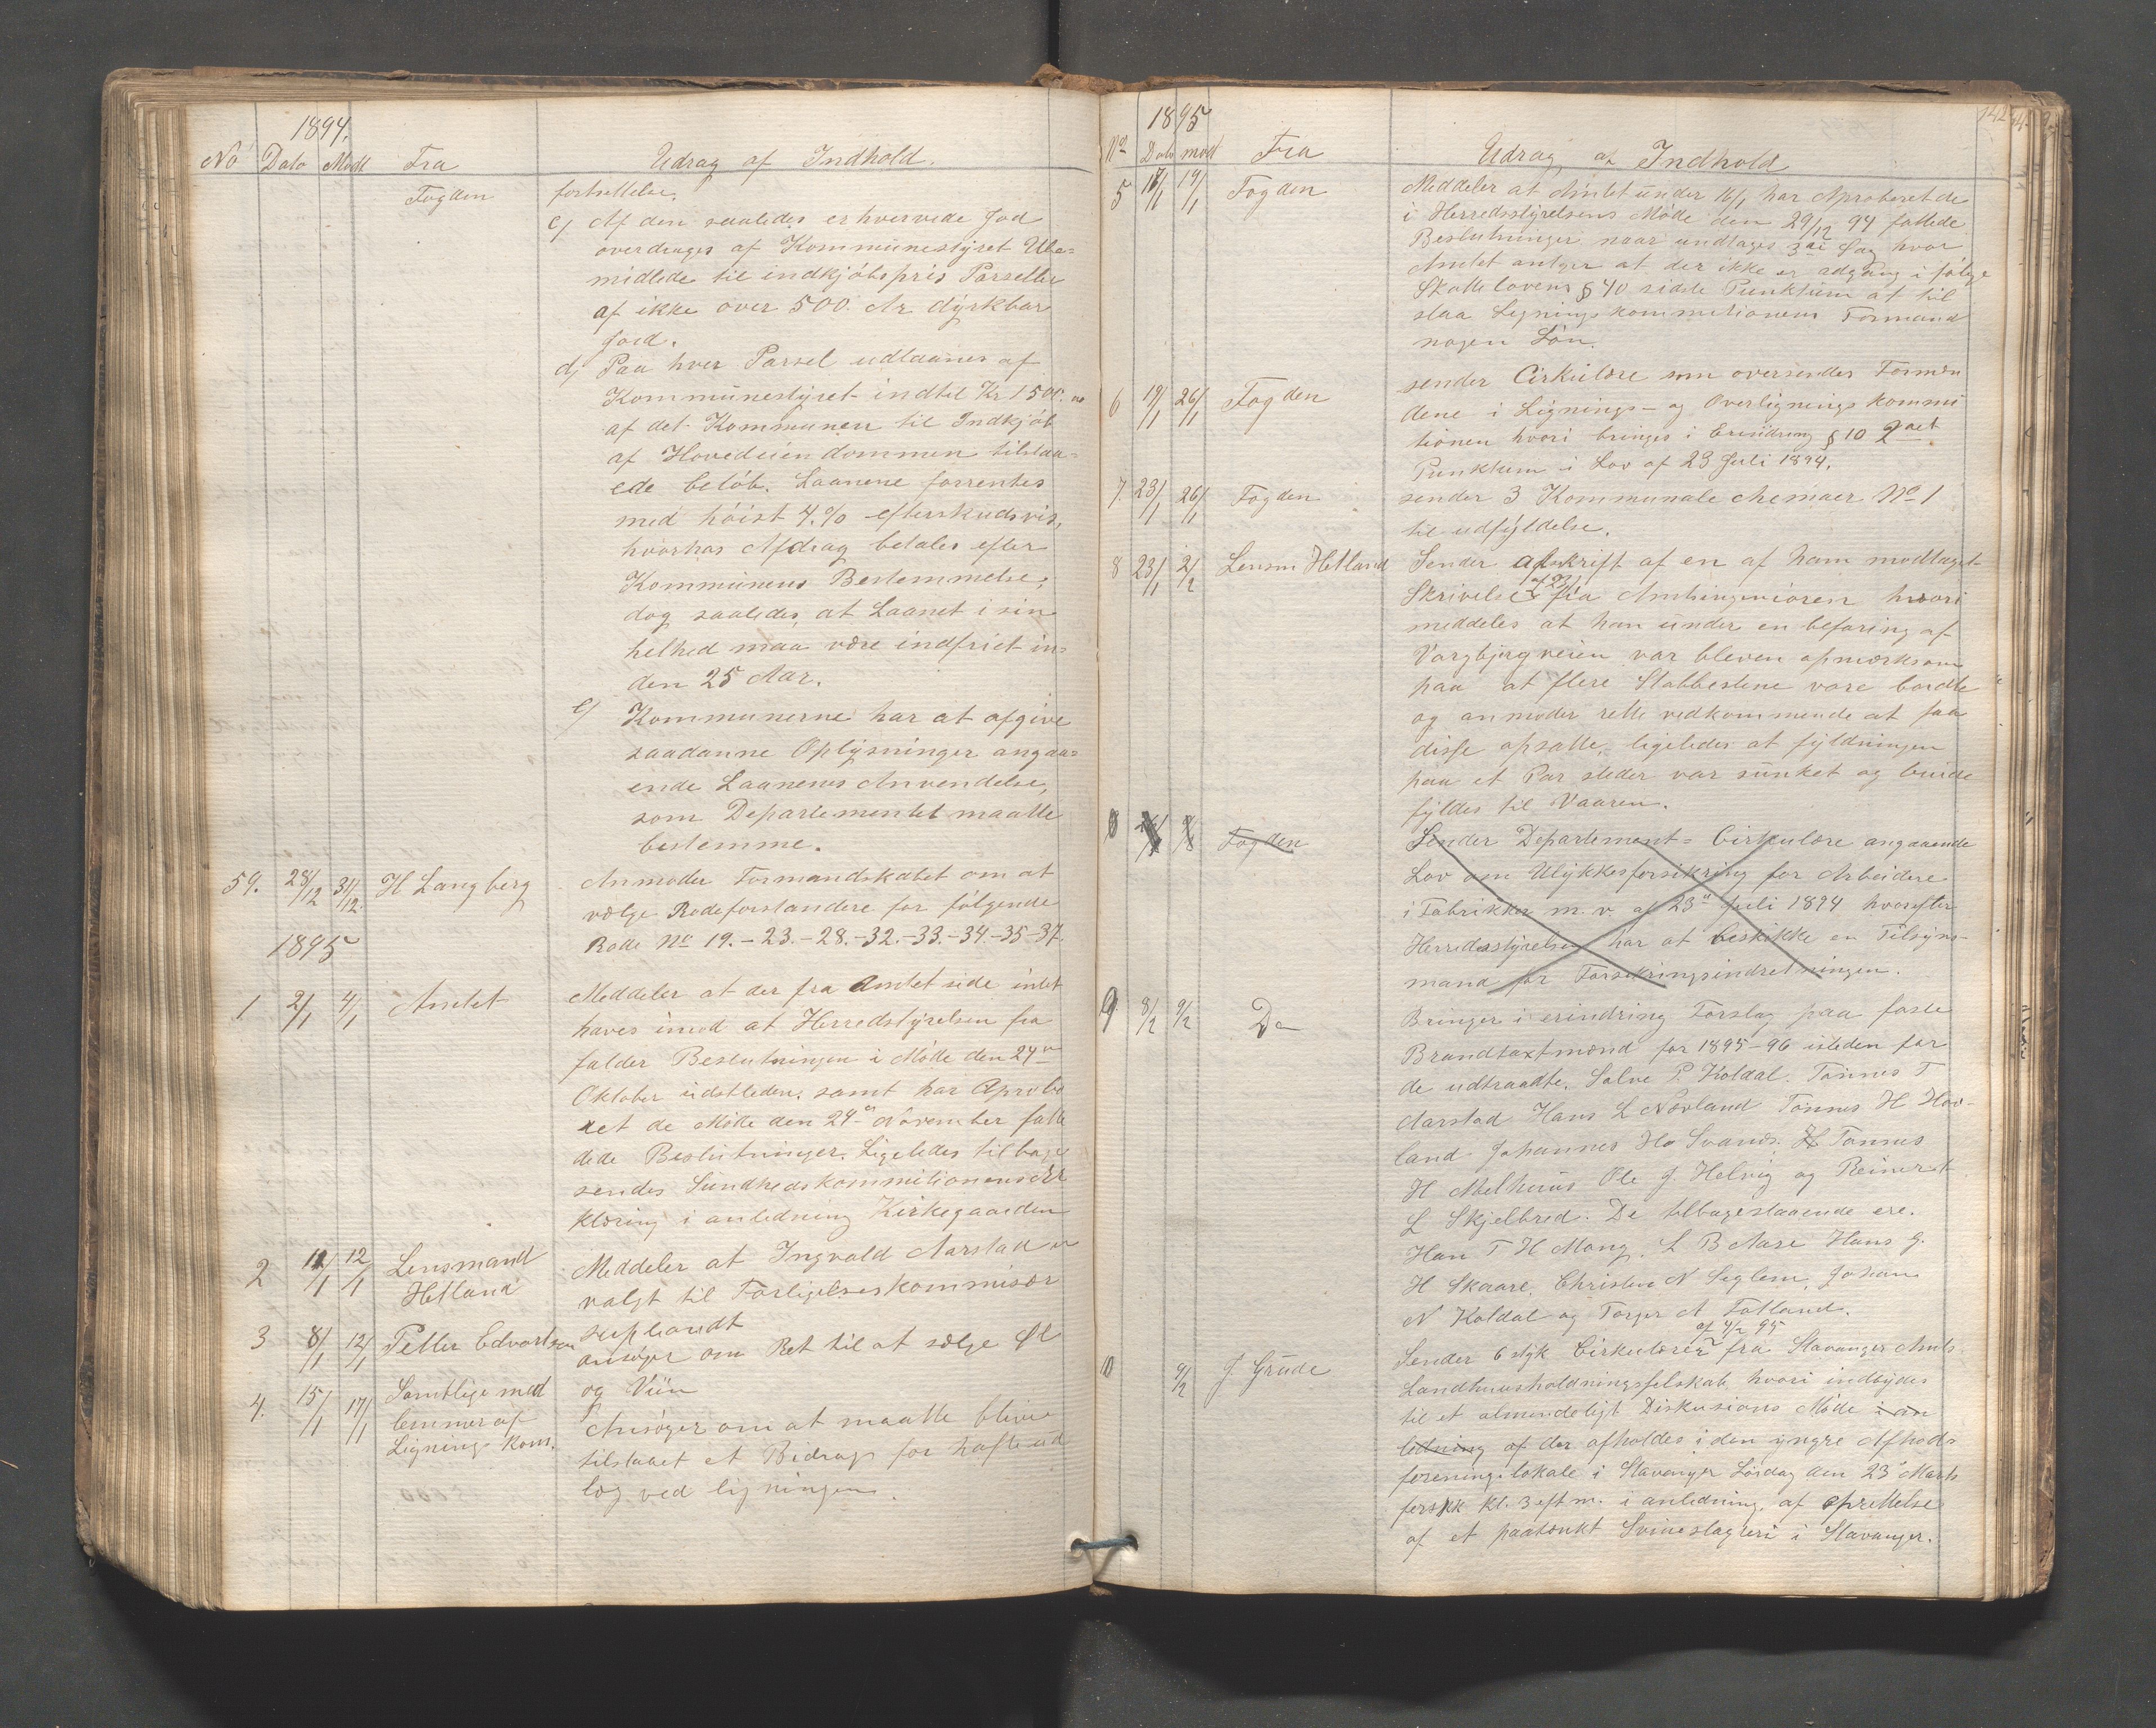 1894.
No Dato Modt Fra Udrag af Indhold.
Fogden fortsettelse.
c) Af den saaledes erhvervede Jod
overdrages af Kommunestyret Ube=
midlede til indkjöbspris Parseller
af ikke over 500. Ar dyrkbar
Jord.
d) Paa hver Parsel udlaanes af
Kommunestyret indtil Kr 1500.00
af det Kommunen til Indkjöb
af Hovedeiendommen tilstaa=
ede belöb. Laanene forrentes
med höist 4.% efterskudsvis,
hvorhos Afdrag betales efter
Kommunens Bestemmelse,
dog saaledes, at Laanet i sin
helhed maa være indfriet in=
den 25 Aar.
e) Kommunerne har at afgive
saadanne Oplysninger angaa=
ende Laanenes Anvendelse,
som Departementet maatte
bestemme.
59. 28/12 31/12. H Langberg Anmoder Formandskabet om at
vælge Rodeforstandere for fölgende
1895 Rode No 19.-23.-28.-32.-33.-34.-35-37.
1 2/1 4/1 Amtet Meddeler at der fra Amtet side intet
haves imod at Herredstyrelsen fra
falder Beslutningen i Möde den 24de
Oktober sidstleden, samt har Aprobe
ret de Möde den 24de November fatte
dede Beslutninger. Ligeledes tilbage
sendes Sundhedskommitionens Er
klæring i anledning Kirkegaarden
2 11/1 12/1 Lensmand Meddeler at Ingvald Aarstad er
Hetland valgt til Forligelseskommisær
supliandt
3 8/1 12/1 Petter Edvartsen ansöger om Ret til at sælge Öl
og Viin
4. 15/1 17/1 Samtlige med Ansöger om at maatte blive
lemmer af tilstaaet et Bidrag for hafte ud
Lignings Kom. læg ved ligningen.
142
1895
No Dato mod Fra Udrag af Indhold
5 18/1 19/1 Fogden Meddeler at Amtet under 16/1 har Aproberet de
i Herredsstyrelsens Möde den 29/12 94 fattede
Beslutninger naar undtages 3die Sag hvor
Amtet antger at der ikke er adgang i fölge
Skattelovens § 40 sidste Punktum at til
slaa Ligningskommitionens Formand
nogen Lön.
6 19/1 26/1 Fogden sender Cirkulære som oversendes Formæn
dene i Lignings- og Overlignings kommi
tionen hvori bringes i Erindring § 10 2det
Punktum i Lov af 23 Juli 1894.
7. 23/1 26/1 Fogden sender 3 Kommunale chemaer No 1
til udfyldelse.
8 23/1 2/2 Lensm Hetland Sender afskrift af en af ham modtaget
Skrivelse af 22/1 fra Amtingeniören hvori
meddeles at han under en befaring af
Vargbjergveien var bleven opmærksom
paa at flere Stabbestene vare borte
og anmoder rette vedkommende at faa
disse opsatte, ligeledes at fyldningen
paa et Par steder var sunket og burde
fyldes til Vaaren.
Fogden Sender Departement= Cirkulære angaaende
Lov om Ulykkesforsikring for Arbeidere
i Fabrikker m.v. af 23de Juli 1894 hvorefter
Herredsstyrelsen har at beskikke en Tilsyns-
mand for Forsikringsindretningen.
9 8/2 9/2 Do Bringer i erindring Forslag paa faste
Brandtaxtmænd for 1895-96 isteden for
de udtraadte, Salve P. Koldal. Tönnes T
Aarstad Hans L Nevland Tönnes H Hov-
land Johannes Ho Svanes. H Tönnes
H Melhuus Ole J. Helvig og Reinert
L Skjelbred. De tilbagestaaende ere.
Han T H Mong. L B Aase Hans G.
H Skaare, Christen N Seglem, Johan
N Koldal og Torger A Fotland.
10 9/2 J Grude Sender 6 styk Cirkulærer af 4/2 95 fra Stavanger Amts
Landhuusholdningsselskab, hvori indbydes
til et almindeligt Diskusions Möde i an
ledning af der afholdes i den yngre Afhods
foreningslokale i Stavanger Lördag den 23de Marts
förskk kl. 3 eft m. i anledning af oprettelse
af et paatænkt Svineslagteri i Stavanger.